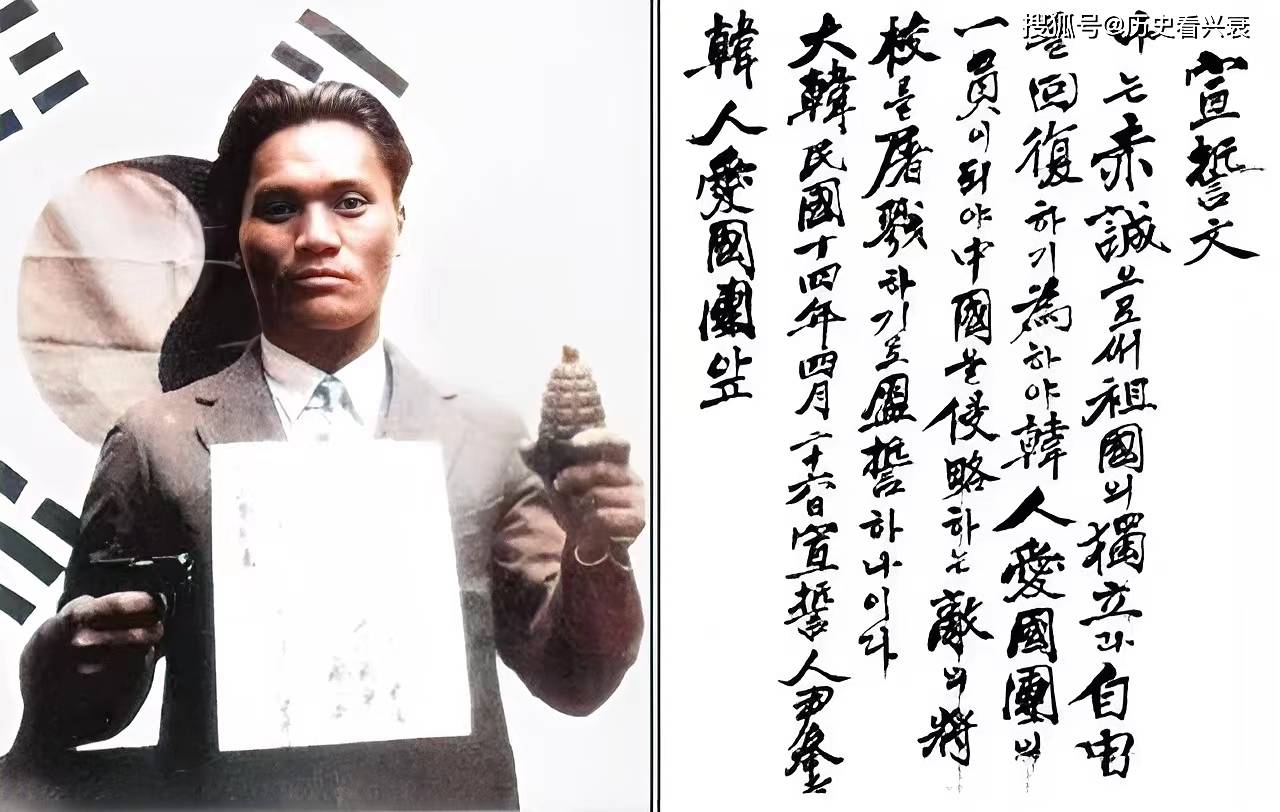 搜狐号@历史看兴衰
宣誓文
나는赤誠으로써祖國의獨立과自由
를回復하기為하야韓人愛國團의
一員이되야中國을侵略하는敵의將
校를屠戮하기로盟誓하나이다
大韓民國十四年四月二十六日宣誓人尹奉吉
韓人愛國團앞